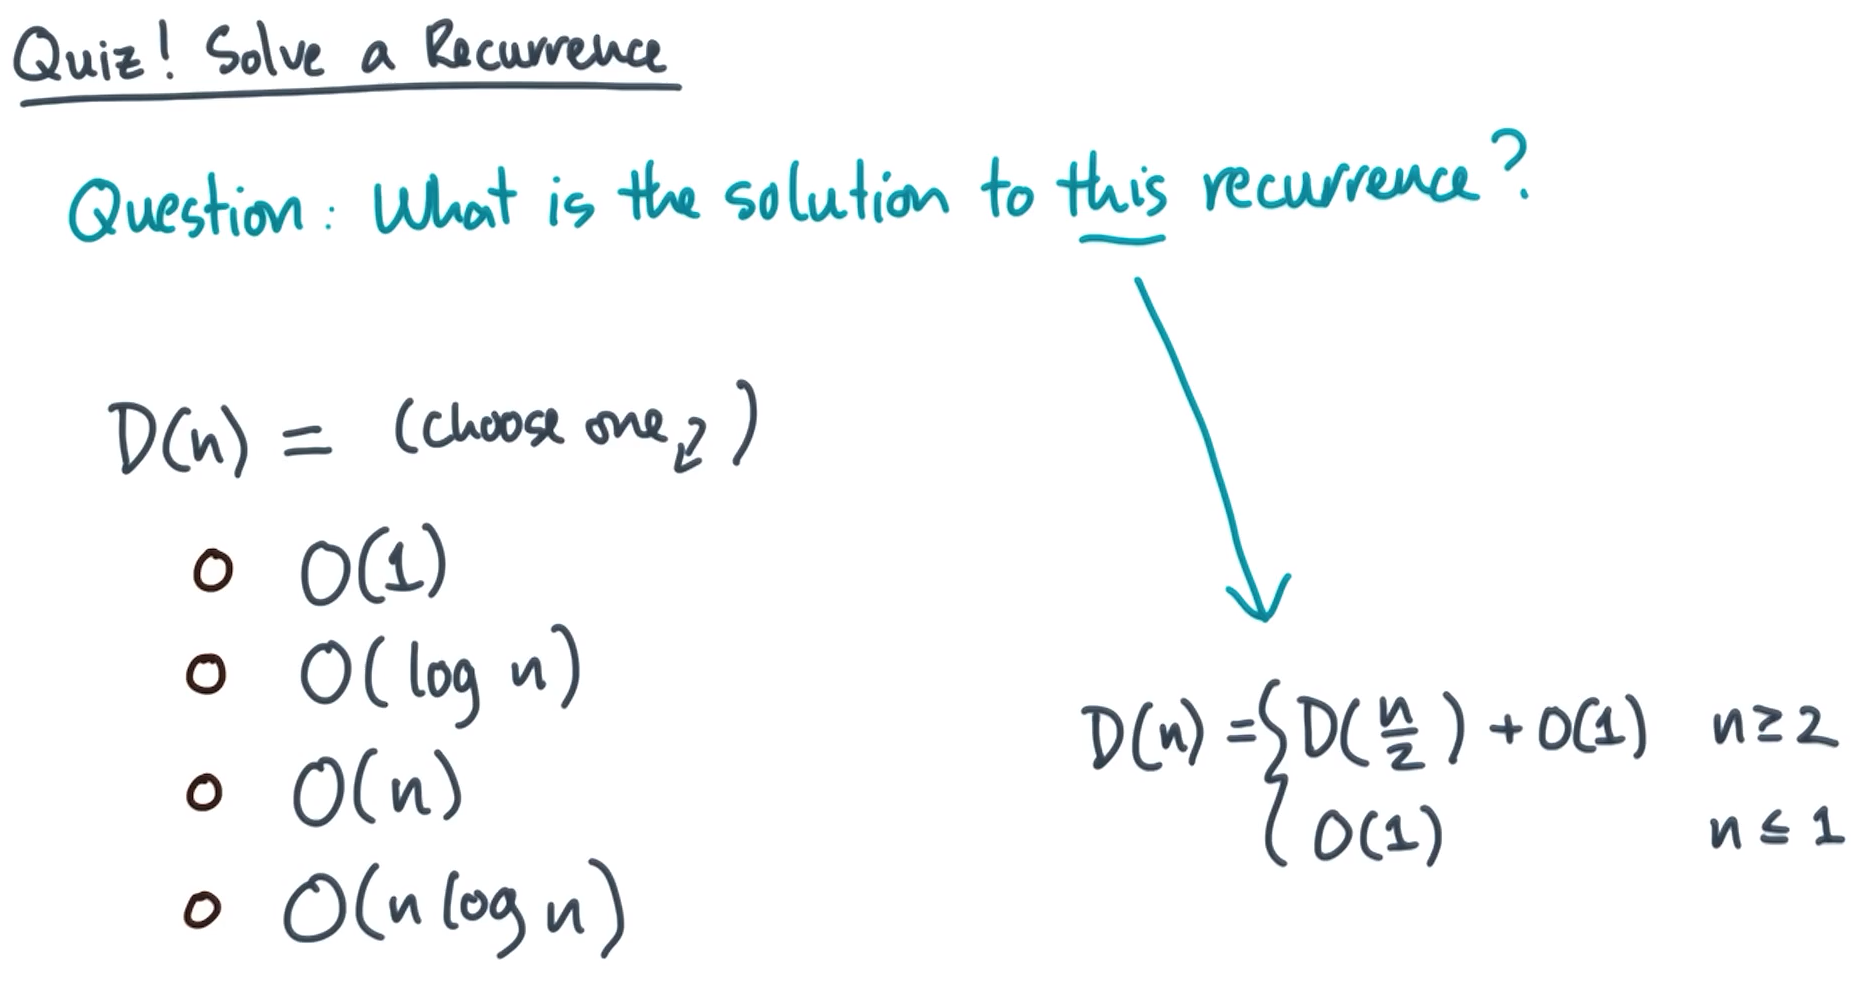 Quiz! Solve a Recurrence
Question: What is the solution to this recurrence?
D(n) = (choose one)
O(1)
O(log n)
O(n)
O(n log n)
D(n) = { D(n/2) + O(1) n ≥ 2
O(1) n ≤ 1